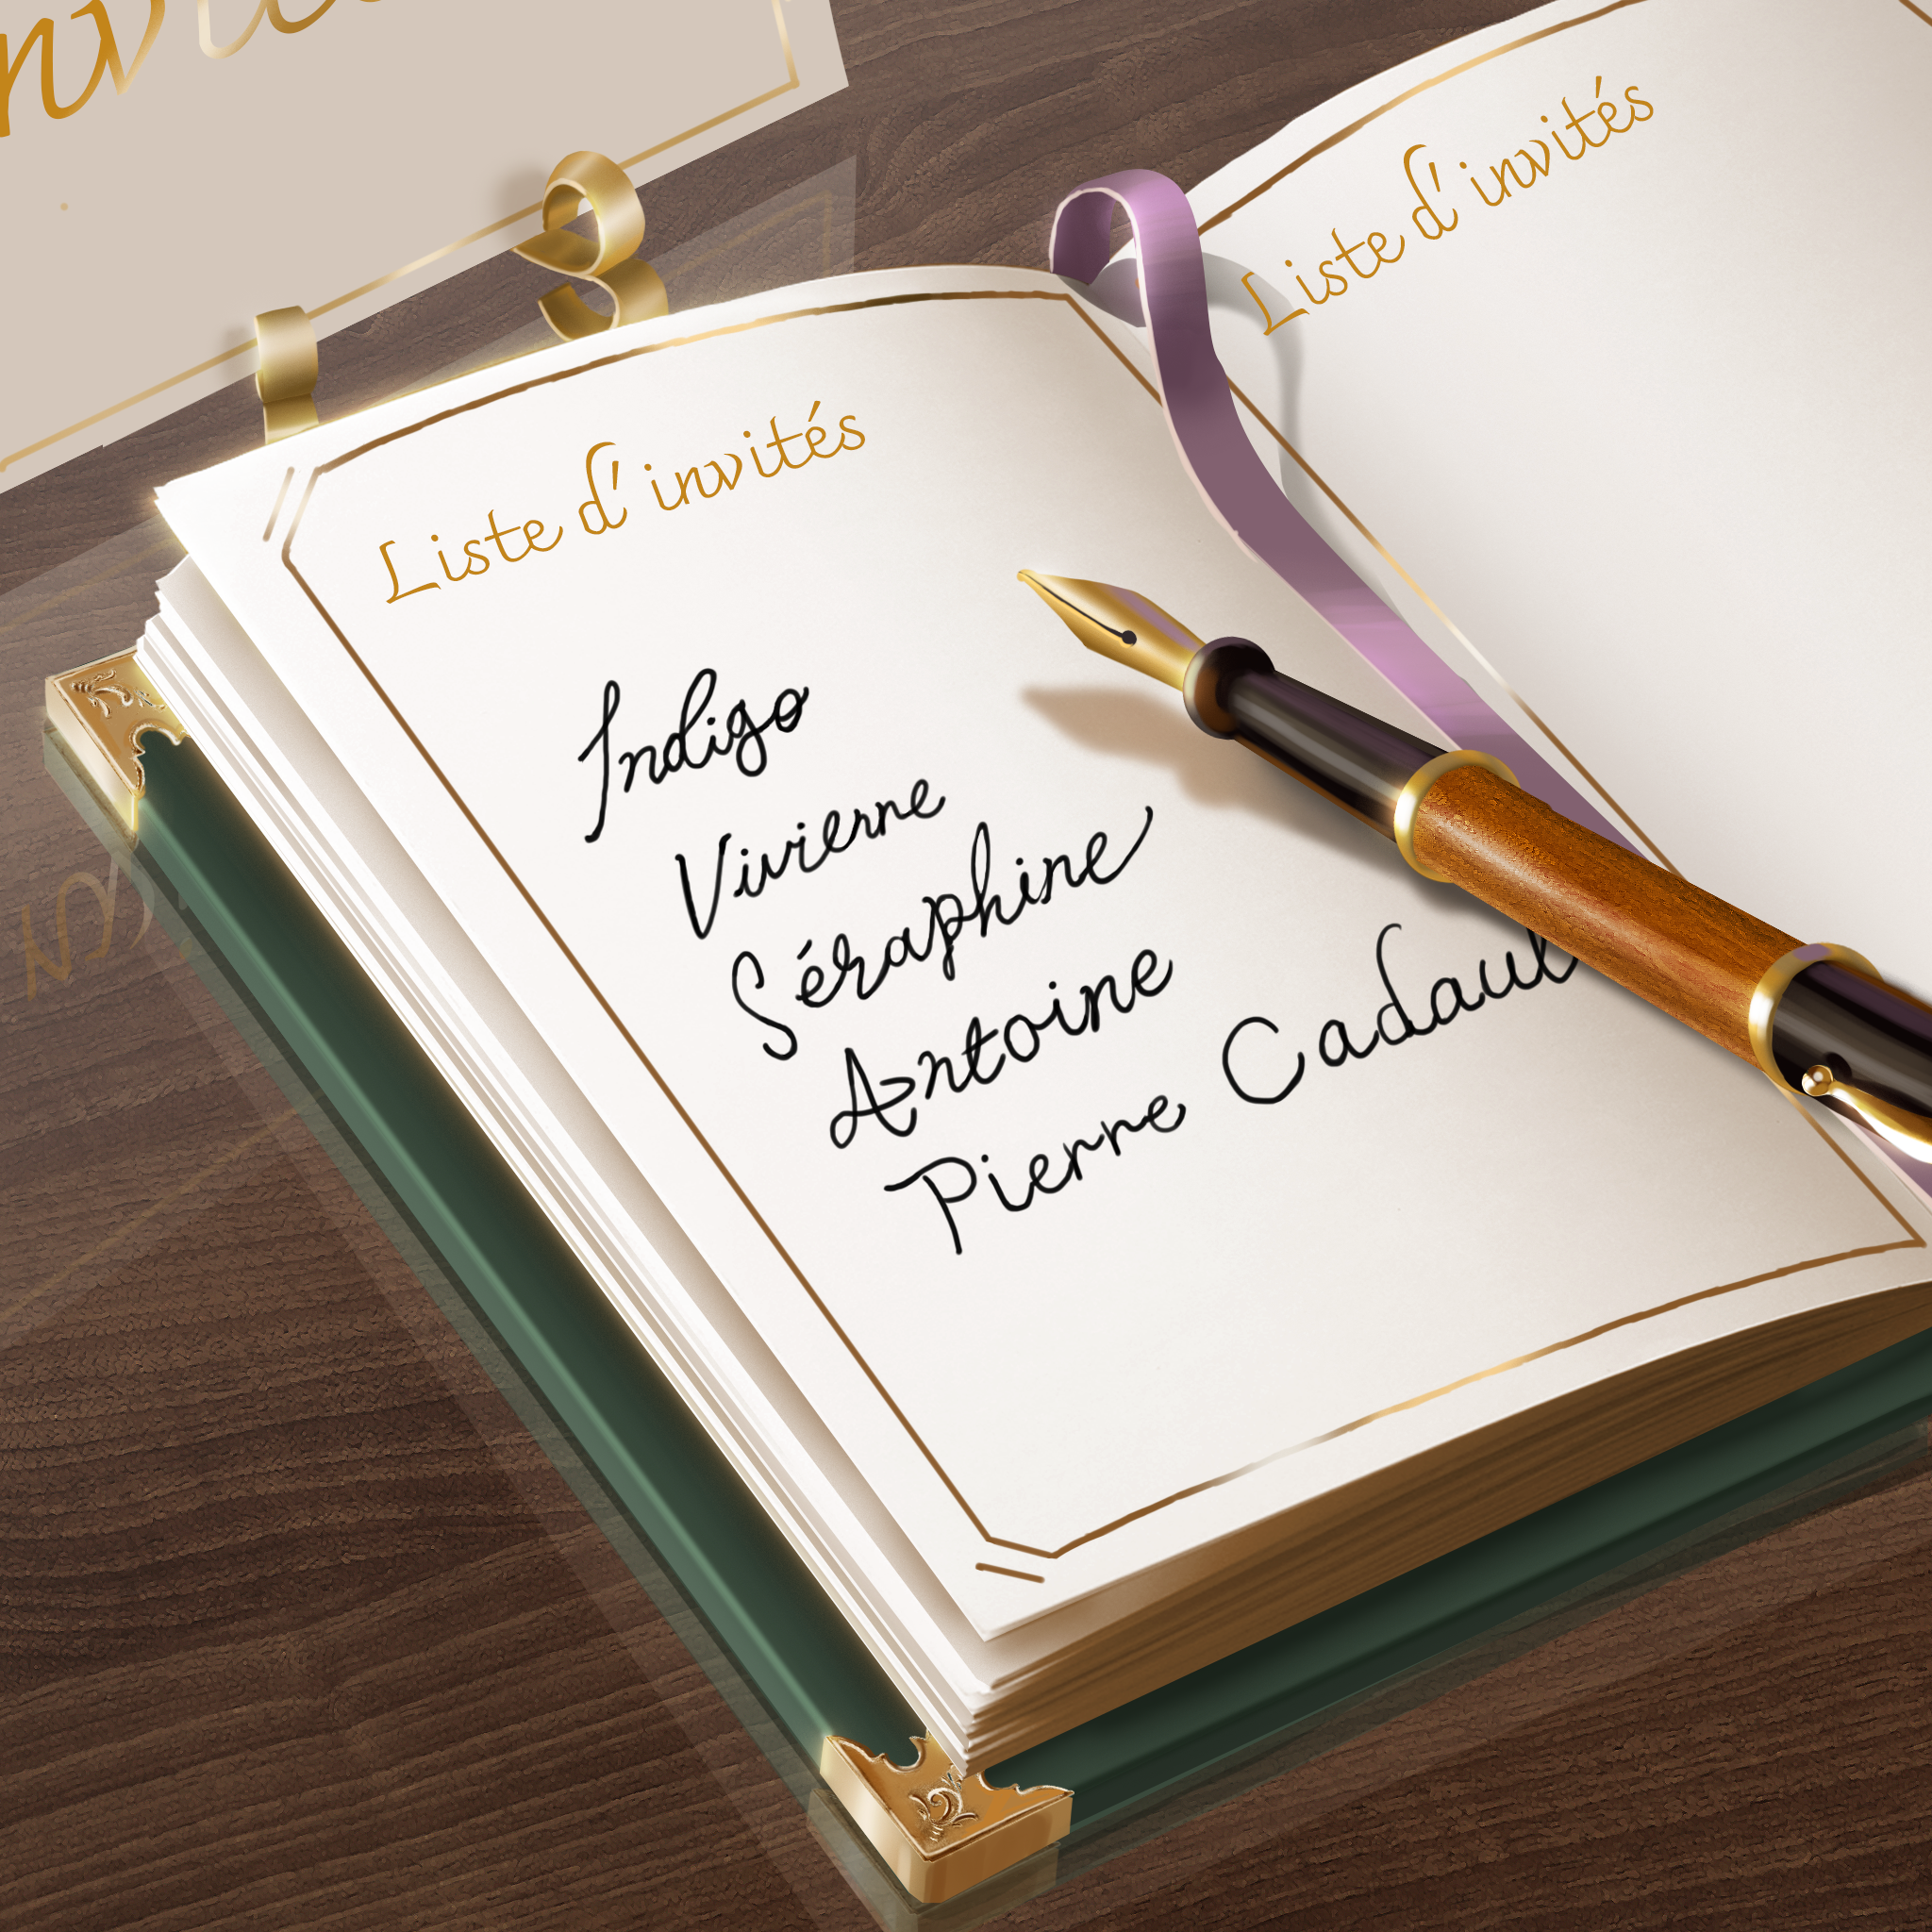 Liste d'invités
Indigo
Vivienne
Séraphine
Antoine
Pierre
Liste d'invités